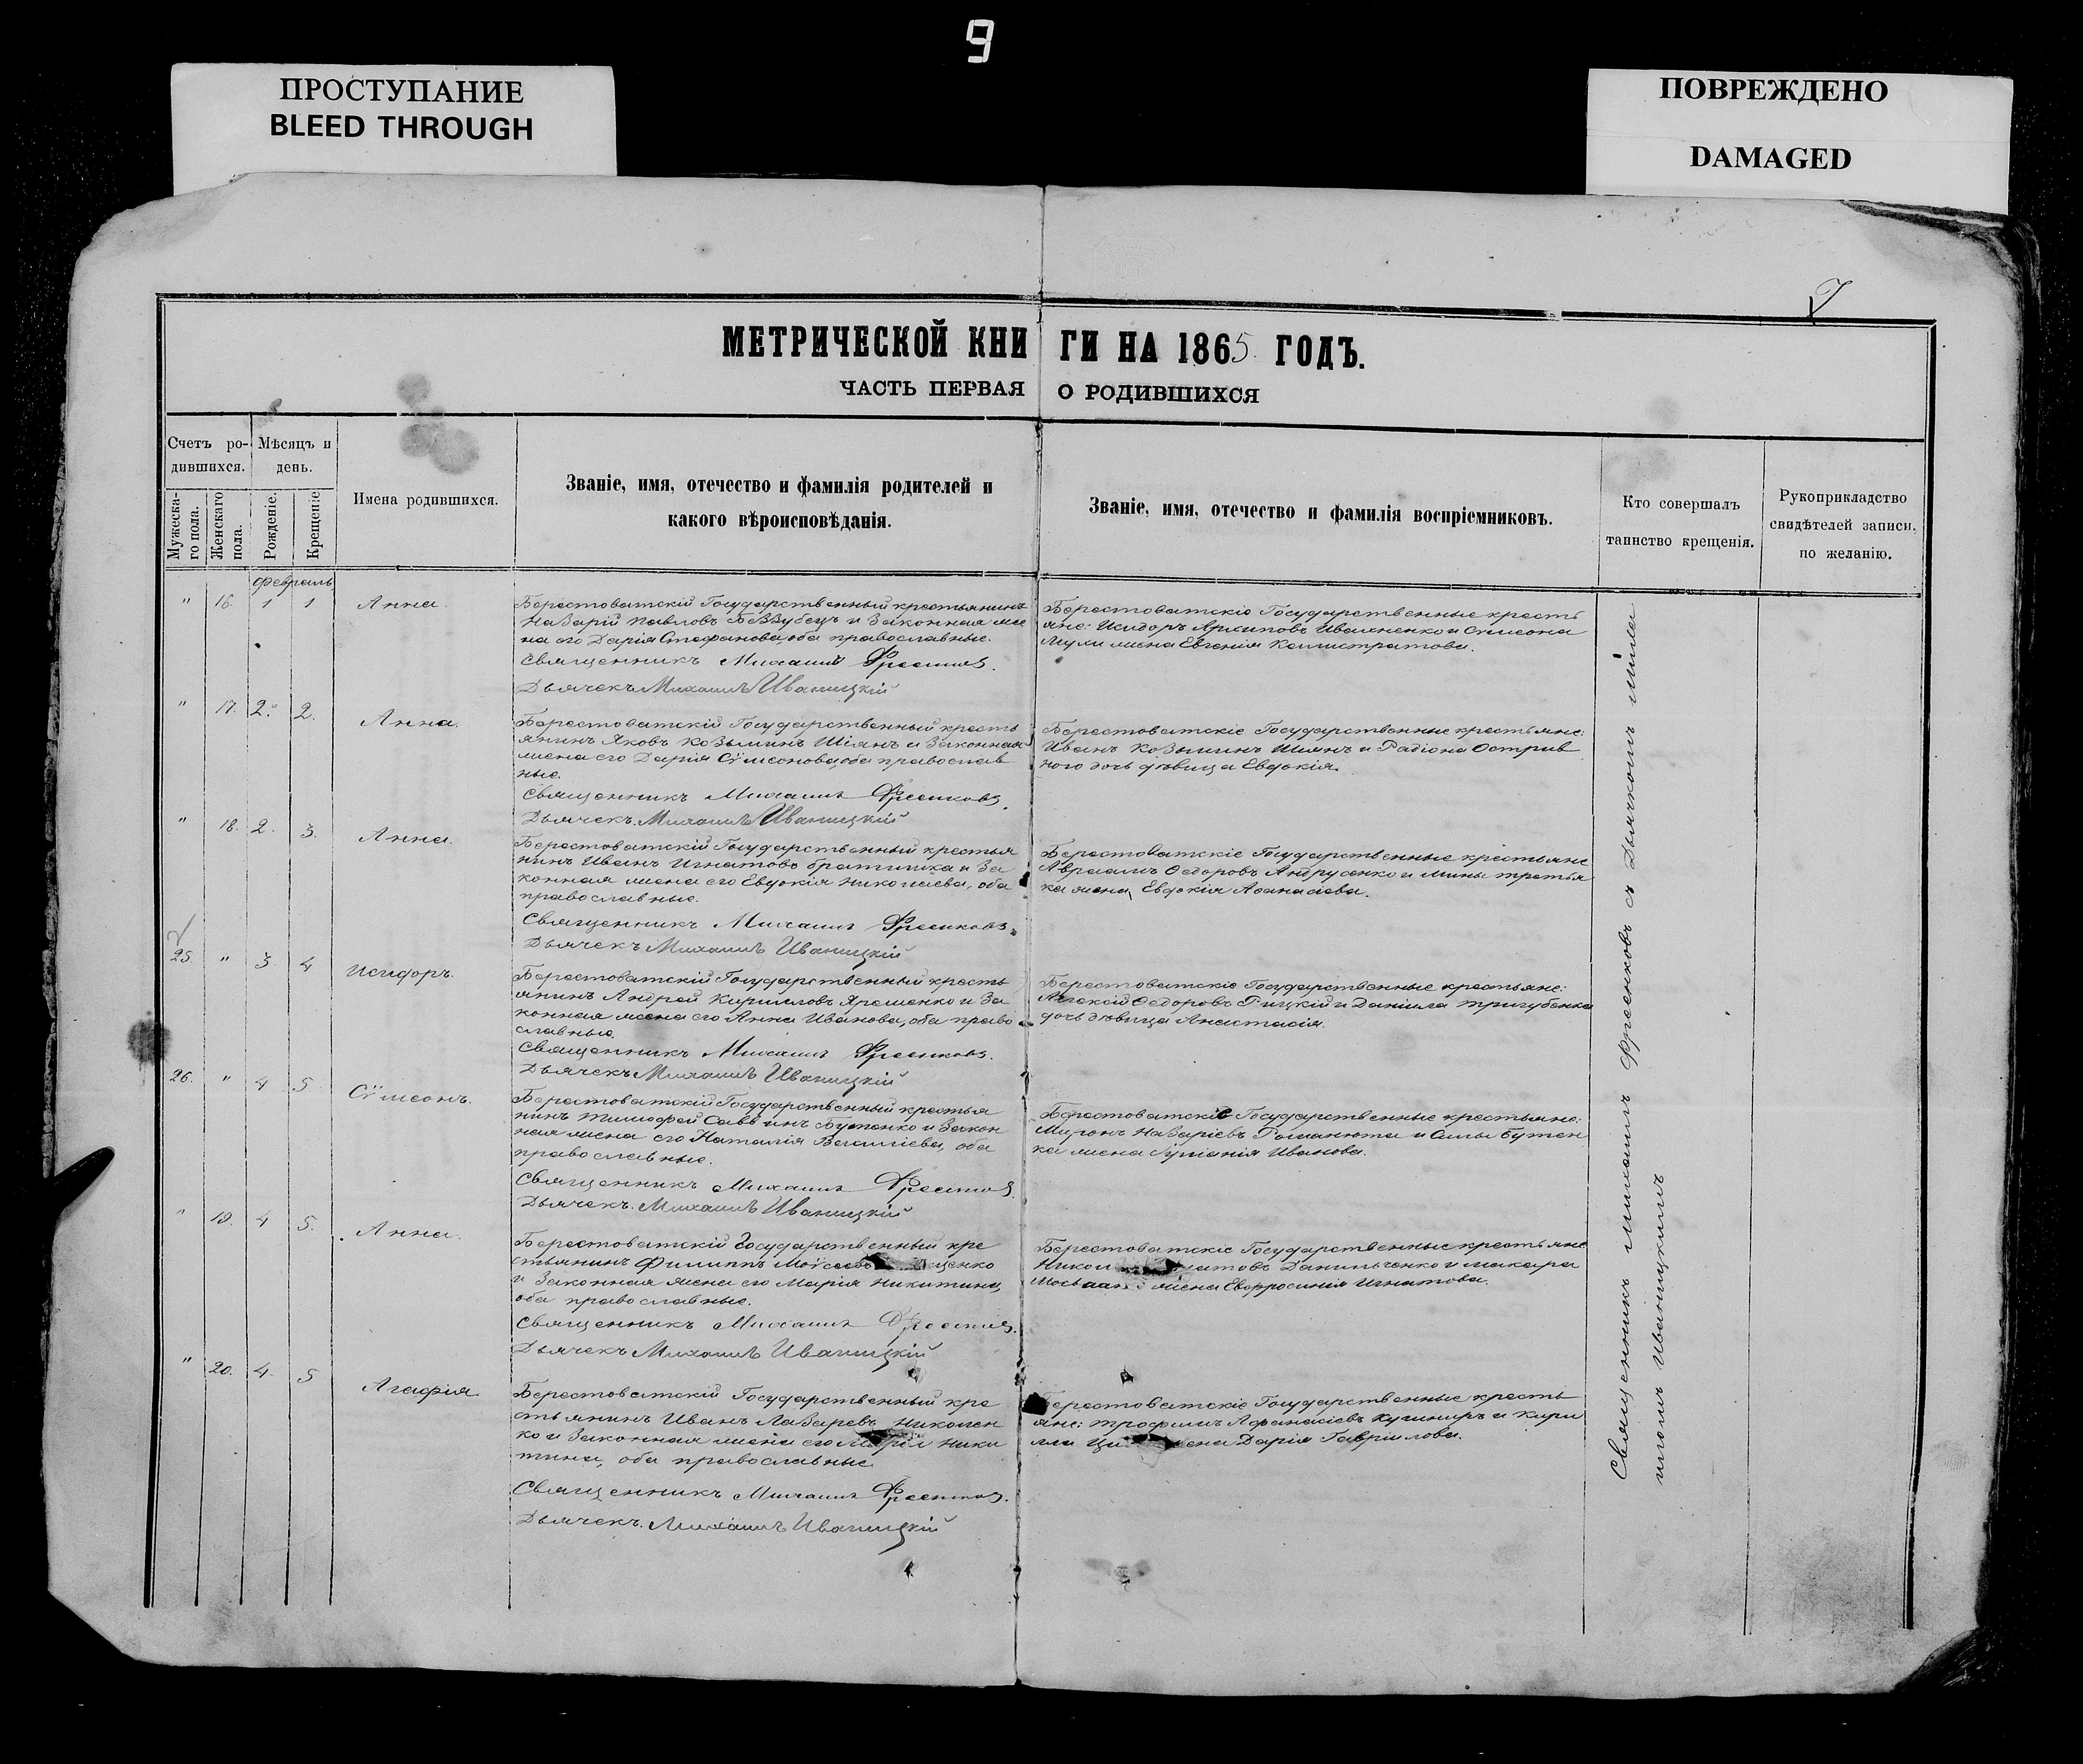 9
ПРОСТУПАНИЕ
BLEED THROUGH
ПОВРЕЖДЕНО
DAMAGED
7
МЕТРИЧЕСКОЙ КНИГИ НА 1865 ГОДЪ.
ЧАСТЬ ПЕРВАЯ О РОДИВШИХСЯ
Счетъ ро-
дившихся.
Мужеска-
го пола.
Женскаго
пола.
Мѣсяцъ и
день.
Рожденіе.
Крещеніе
Имена родившихся.
Званіе, имя, отечество и фамилія родителей и
какого вѣроисповѣданія.
Званіе, имя, отечество и фамилія воспріемниковъ.
Кто совершалъ
таинство крещенія.
Рукоприкладство
свидѣтелей записи,
по желанію.
Февраль
" 16. 1 1 Анна.
Берестоватскій Государственный крестьянинъ
Назарій Павловъ и Законная же
на его Дарія Стефанова, оба православные.
Священникъ Михаилъ
Дьячекъ Михаилъ Иваницкій
Берестоватскіе Государственные кресть
яне: Исидоръ Архиповъ Иваненко и Симеона
жена Евгенія Калистратова.
" 17. 2. 2. Анна.
Берестоватскій Государственный кресть
янинъ Яковъ Козьминъ Шіянъ и Законная
жена его Дарія Сѵмеонова, оба православ
ные.
Священникъ Михаилъ
Дьячекъ Михаилъ Иваницкій
Берестоватскіе Государственные крестьяне:
Иванъ Козьминъ Шіянъ и Радіона Острив
ного дочь дѣвица Евдокія.
" 18. 2. 3. Анна.
Берестоватскій Государственный крестья
нинъ Иванъ Игнатовъ Братишка и За
конная жена его Евдокія Николаева, оба
православные.
Священникъ Михаилъ
Дьячекъ Михаилъ Иваницкій
Берестоватскіе Государственные крестьяне
Авраамъ Ѳедоровъ Андрусенко и Мины Третья
ка жена Евдокія Аѳанасіева.
25 " 3 4 Исидоръ.
Берестоватскій Государственный кресть
янинъ Андрей Кирилловъ Ярешенко и За
конная жена его Анна Иванова, оба право
славные.
Священникъ Михаилъ
Дьячекъ Михаилъ Иваницкій
Берестоватскіе Государственные крестьяне:
Алексій Ѳедоровъ и Даніила Тригубенка
дочь дѣвица Анастасія.
26. " 4 5 Сѵмеонъ.
Берестоватскій Государственный крестья
нинъ Тимофей Саввинъ Бутенко и Закон
ная жена его Наталія Василіева, оба
православные.
Священникъ Михаилъ
Дьячекъ Михаилъ Иваницкій
Берестоватскіе Государственные крестьяне:
Миронъ Назаріевъ Романюта и Саввы Бутен
ка жена Іуліанія Иванова.
" 19. 4 5. Анна.
Берестоватскій Государственный кре
стьянинъ Филиппъ Моѵсеевъ
и Законная жена его Марія Никитина,
оба православные.
Священникъ Михаилъ
Дьячекъ Михаилъ Иваницкій
Берестоватскіе Государственные крестьяне
Данильченко и Макара
жена Евфросинія Игнатова.
" 20. 4. 5 Агафія
Берестоватскій Государственный кре
стьянинъ Иванъ Лазаревъ Николен
ко и Законная жена его Марія Ники
тина, оба православные.
Священникъ Михаилъ
Дьячекъ Михаилъ Иваницкій
Берестоватскіе Государственные кресть
яне: Трофимъ Афанасіевъ Кушниръ и Кири
лла жена Дарія Гавріилова.
Священникъ Михаилъ съ Дьячкомъ Миха
иломъ Иваницкимъ